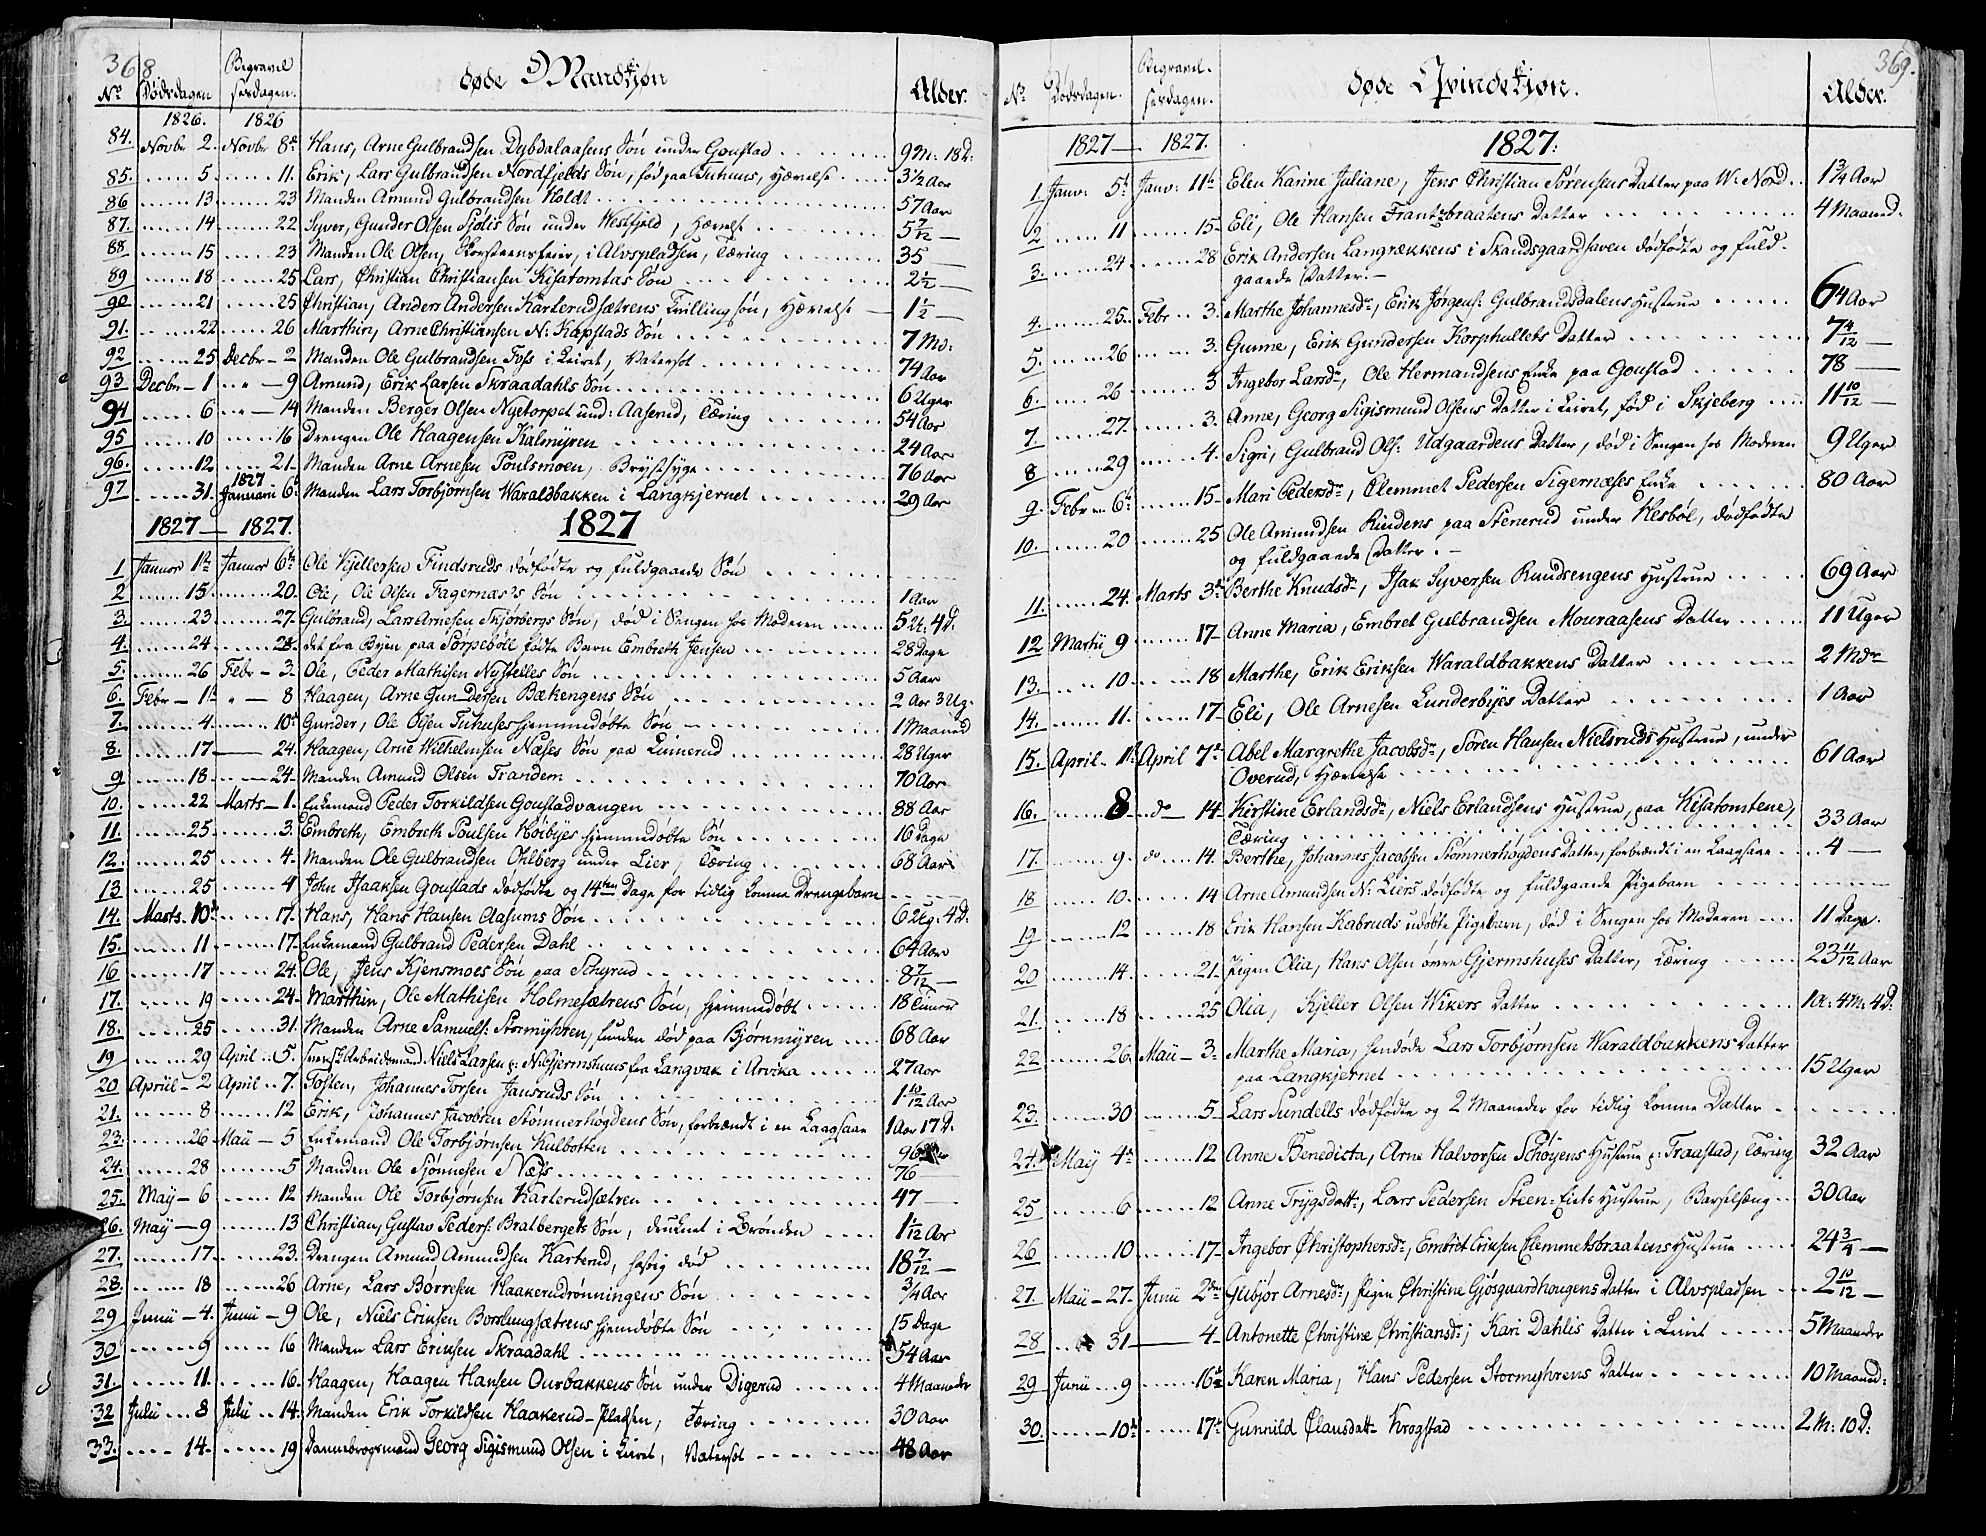 368
No Dødsdagen Begravelsesdagen. døde Mandkjøn Alder.
1826. 1826
84. Novbr 2. Novbr 8de Hans, Arne Gulbrandsen Dybdalaasens Søn under Goustad 9 M: 18 D:
85. 5 11. Erik, Lars Gulbrandsen Nordfjelds Søn, fød paa Tuhuus, Hævelse 3 1/2 Aar
86 13 23 Manden Amund Gulbrandsen Holdt 57 Aar
87. 14 22 Syver, Gunder Olsen Sjølis Søn under Westfjeld, Hævelse
88. 15 23 Manden Ole Olsen, Skorsteensfeier, i Alvspladsen, Tæring 35 —
89 18 25 Lars, Christian Christiansen Kisatomtas Søn 2 1/2 —
90 21 25 Christian, Anders Andersen Karterudsætrens Tvillingsøn, Hævelse 1 1/2 —
91. 22 26 Marthin, Arne Christiansen N: Kæpstads Søn 7 Md:
92 25 Decbr – 2 Manden Ole Gulbrandsen Foss i Leiret, Vatersot 74 Aar
93 Decbr – 1 " — 9 Amund, Erik Larsen Skraadahls Søn 6 Uger
94 6 " — 14 Manden Berger Olsen Nyetorpet und: Aaserud, Tæring 54 Aar
95 10 16 Drengen Ole Haagensen Kalmyren 24 Aar
96. 12 21. Manden Arne Arnesen Poulsmoen, Brystsyge 76 Aar
1827
97 31. Januarii 6te Manden Lars Torbjørnsen Waraldbakken i Langkjernet 29 Aar
1827 — 1827. 1827
1 Januar 1ste Januar 6te Ole Kjellersen Findsruds dødfødte og fuldgaaende Søn
2 15 20. Ole, Ole Olsen Fagernæs's Søn 1 Aar
3. 23 27. Gulbrand, Lars Arnesen Skjørbergs Søn, død i Sengen hos Moderen 5 Ug: 4 D.
4. 24 28. det fra Byen paa Torpebøl fødte Barn Embreth Jensen 28 Dage
5. 26 Febr – 3. Ole, Peder Mathisen Nystelles Søn 5 Aar
6. Febr – 1ste " — 8 Haagen, Arne Gundersen Bækengens Søn 2 Aar 3 Ug.
7. 4. 10de Gunder, Ole Olsen Tuhuses hjemmedøbte Søn – 1 Maaned
8. 17 24. Haagen, Arne Wilhelmsen Næses Søn paa Linnerud 28 Uger
9 18. 24. Manden Amund Olsen Trandem 70 Aar
10. 22 Marts – 1. Enkemand Peder Torkildsen Goustadvangen 88 Aar
11. 25 3. Embreth, Embreth Poulsen Høibyes hjemmedøbte Søn 16 Dage
12. 25 4. Manden Ole Gulbrandsen Ohlberg under Lier, Tæring 68 Aar
13 25 4 John Isaaksen Goustads dødfødte og 14ten Dage for tidlig komne Drengebarn
14. Marts. 10de 17. Hans, Hans Hansen Aasums Søn 6 Ug: 4 D.
15. 11 17. Enkemand Gulbrand Pedersen Dahl 64 Aar
16 17 24. Ole, Jens Kjensmoes Søn paa Schyrud 8 7/12 —
17. 19 24. Marthin, Ole Mathisen Holmesætrens Søn, hjemmedøbt 18 Timer
18. 25 31. Manden Arne Samuels: Stormyhren, funden død paa Bjørnmyren 68 Aar
19 29 April 5. Svensk Arbeidsmand Niels Larsen p: N: Gjermshuus fra Langvak i Arvika 27 Aar
20 Apriil – 2 April 7. Tosten, Johannes Torsen Jansruds Søn 1 10/12 Aar
21. 8 12 Erik, Johannes Jacobsen Stømnerhøgdens Søn, forbrændt i en Laagsaae 1 Aar 17 D.
23. 26 Maii – 5 Enkemand Ole Torbjørnsen Kulbotten
24. 28 5 Manden Ole Sjønnesen Næss 76
25. May – 6 12 Manden Ole Torbjørnsen Karterudsætren 47 —
26. May — 9 13 Christian, Gustav Peders: Bratbergets Søn, druknet i Brønden 1 1/12 Aar
27. 17. 23. Drengen Amund Amundsen Karterud, hastig død 18 7/12 —
28. 18 26 Arne, Lars Børresen Haakerudrønningens Søn 3/4 Aar
29 Junii – 4. Junii – 9 Ole, Niels Eriksen Borslungsætrens hjemdøbte Søn 15 Dage
30 9 16 Manden Lars Eriksen Skraadahl 54 Aar
31. 11. 16. Haagen, Haagen Hansen Ourbakkens Søn under Digerud 4 Maaneder
32 Julii 8 Julii 14. Manden Erik Torkildsen Haakerud-Pladsen, Tæring 30 Aar
33. 14. 19 Dannebrogsmand Georg Sigismund Olsen i Leiret, Vatersot 48 Aar
369.
No Dødsdagen. Begravelsesdagen. døde Qvindekjøn. Alder.
1827 — 1827. 1827:
1. Janv: 5te Janv: 11te Elen Karine Juliane, Jens Christian Sørensens Datter paa W: Nord 1 3/4 Aar
2 11 15. Eli, Ole Hansen Frantzbraatens Datter 4 Maaned:
3. 24 28 Erik Andersen Langrækkens i Skandsgaardhaven dødfødte og fuld-
gaaende Datter. –
4. 25. Febr 3. Marthe Johannesdr, Erik Jørgens: Gulbrandsdalens Hustrue 64 Aar
5. 26 3. Gunne, Erik Gundersen Korphullets Datter 7 4/12 —
6. 26 3 Ingebor Larsdr, Ole Hermandsens Enke paa Goustad 78 —
7 27. 3. Anne, Georg Sigismund Olsens Datter i Leiret, fød i Skjeberg 11 10/12 —
8 29 4. Sigri, Gulbrand Ols: Udgaardens Datter, død i Sengen hos Moderen 9 Uger
9. Febr 6te 15. Mari Pedersdr, Clemmet Pedersen Sigernæses Enke 80 Aar
10. 20 25 Ole Amundsen Rindens paa Stenerud under Kesbøl, dødfødte
og fuldgaaende Datter. –
11. 24. Marts 3de Berthe Knudsdr, Isak Syversen Rundsengens Hustrue 69 Aar
12 Martii 9 17 Anne Maria, Embret Gulbrandsen Mouraasens Datter 11 Uger
13. 10 18 Marthe, Erik Eriksen Waraldbakkens Datter 2 Mdr
14. 11. 17. Eli, Ole Arnesen Lunderbyes Datter 1 Aar
15. April. 1ste April 7de Abel Margrethe Jacobsdr, Søren Hansen Nielsruds Hustrue, under
Overud, Hævelse 61 Aar
16. 8 do 14 Kirstine Erlandsdr, Niels Erlandsens Hustrue, paa Kisatomtene,
Tæring 33 Aar
17. 9. do 14. Berthe, Johannes Jacobsen Stømnerhøgdens Datter, forbrændt i en Laagsaae 4 —
18 10 14 Arne Amundsen N: Liers dødfødte og fuldgaaende Pigebarn
19 12 18 Erik Hansen Kabruds udøbte Pigebarn, død i Sengen hos Moderen 11 Dage.
20 14. 21. Pigen Olia, Hans Olsen øvre Gjermshuses Datter, Tæring 23 11/12 Aar
21. 18 25 Olia, Kjeller Olsen Wikers Datter 1 A: 4 M: 4 D.
22 26. Maii – 3. Marthe Maria, hendøde Lars Torbjørnsen Waraldbakkens Datter
paa Langkjernet 15 Uger
23. 30 5. Lars Sundells dødfødte og 2 Maaneder for tidlig komne Datter
24. May 4de 12 Anne Benedicta, Arne Halvorsen Schøyens Hustrue p: Traastad, Tæring 32 Aar
25 6 12 Anne Trygsdatt:, Lars Pedersen Steen-Eiets Hustrue, Barselsæng 30 Aar
26 10 17. Ingebor Christophersdr, Embret Eriksen Clemmetsbraatens Hustrue 24 3/4 —
27. Maii – 27. Junii 2den Gulbjør Arnesdr, Pigen Christine Gjøsgaardhougens Datter i Alvspladsen 2 10/12 —
28 31 4. Antonette Christine Christiansdr; Kari Dahlis Datter i Leiret 5 Maaneder
29 Junii 9 16de Karen Maria, Hans Pedersen Stormyhrens Datter 10 Maaned:
30. 10de 17de Gunnild Olausdatt: Krogstad 2 M: 10 D.